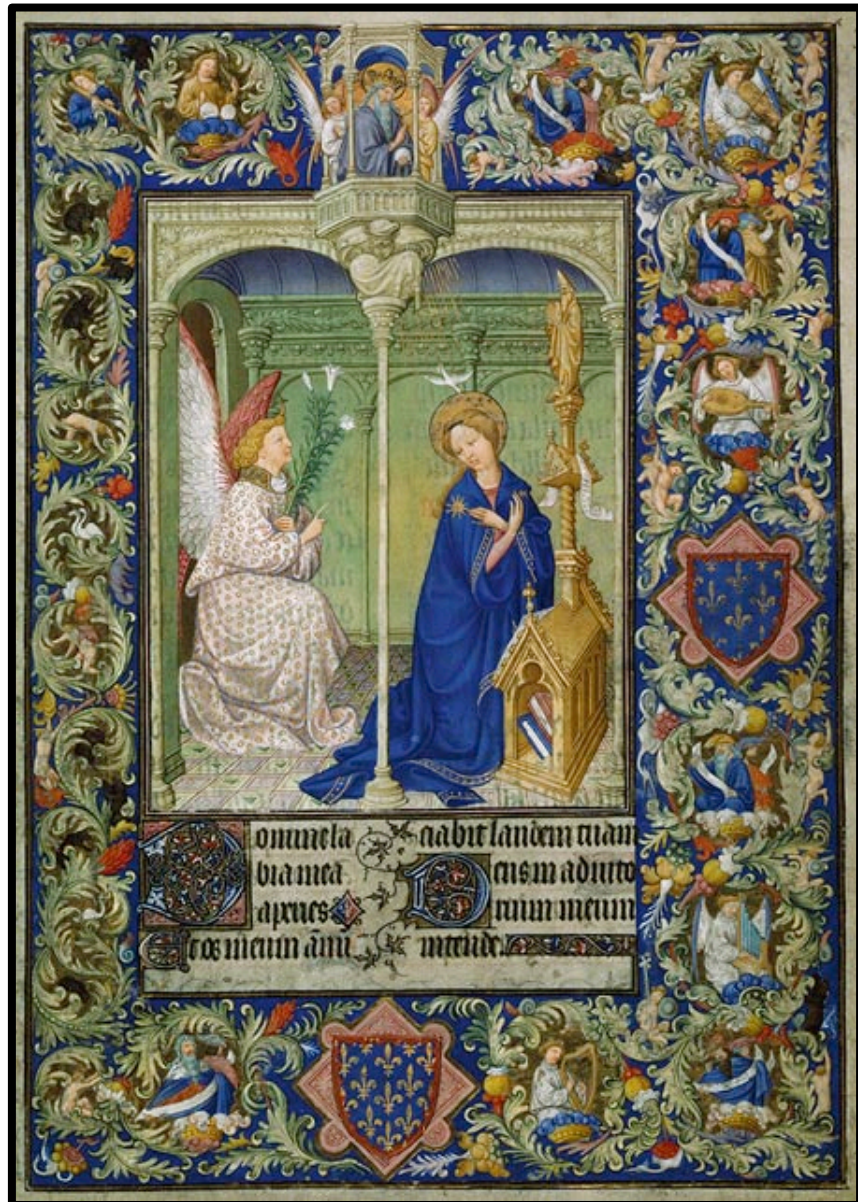 Domine la
bia mea
aperies
Et os meum ānu
ciabit laudem tuam
Deus in adiuto
rium meum
intende.